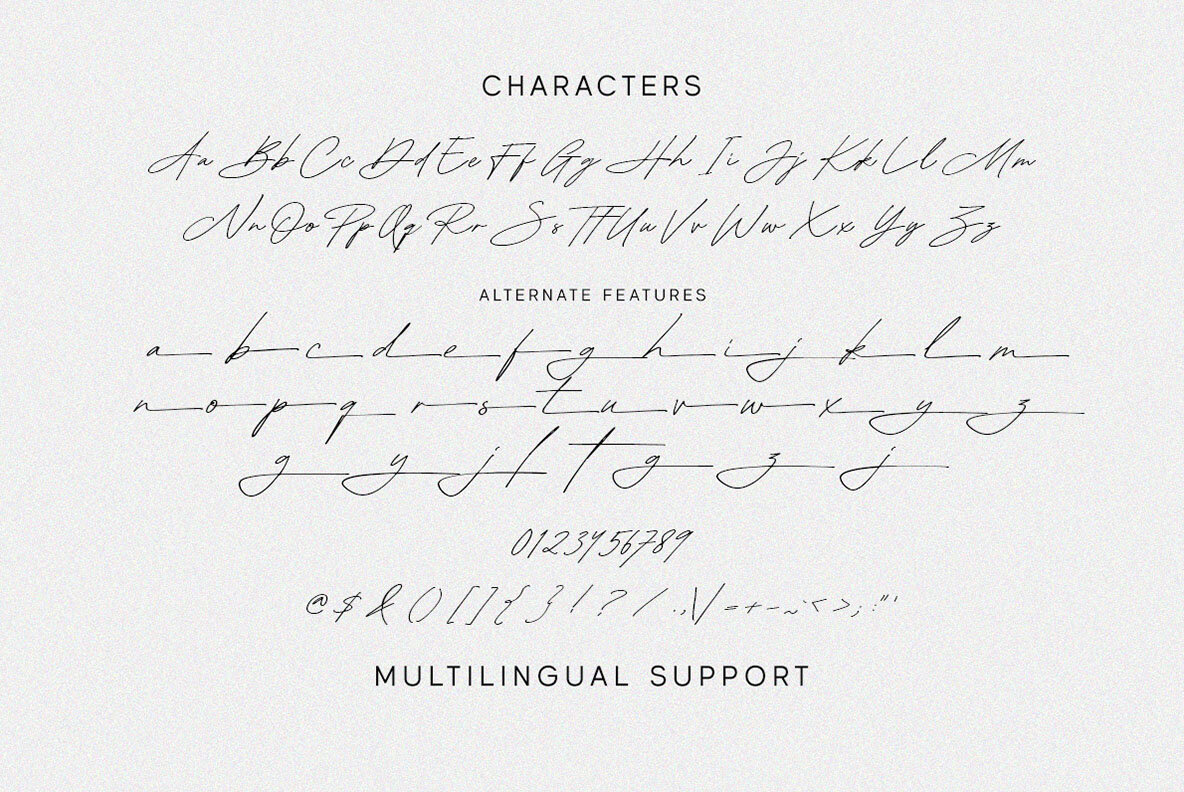 CHARACTERS
Aa Bb Cc Dd Ee Ff Gg Hh Ii Jj Kk Ll Mm
Nn Oo Pp Qq Rr Ss Tt Uu Vv Ww Xx Yy Zz
ALTERNATE FEATURES
a b c d e f g h i j k l m
n o p q r s t u v w x y z
g y j f t g z j
0123456789
@ $ & ( ) [ ] { } ! ? / . , \ | = + - ~ < > ; : " '
MULTILINGUAL SUPPORT